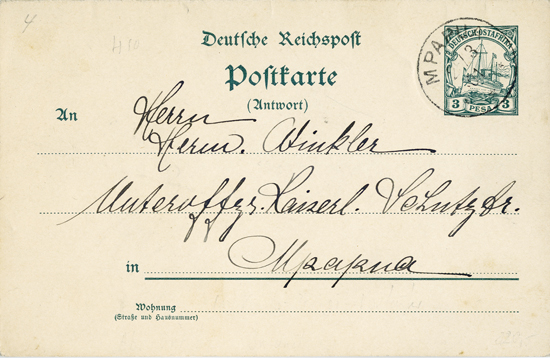 4
Deutsche Reichspost
Postkarte
(Antwort)
MPAPU
DEUTSCH-OSTAFRIKA
3 PESA 3
An
Herrn
Herm. Winkler
Unteroffzr. Kaiserl. Schutztr.
in Mpapua
Wohnung
(Straße und Hausnummer)